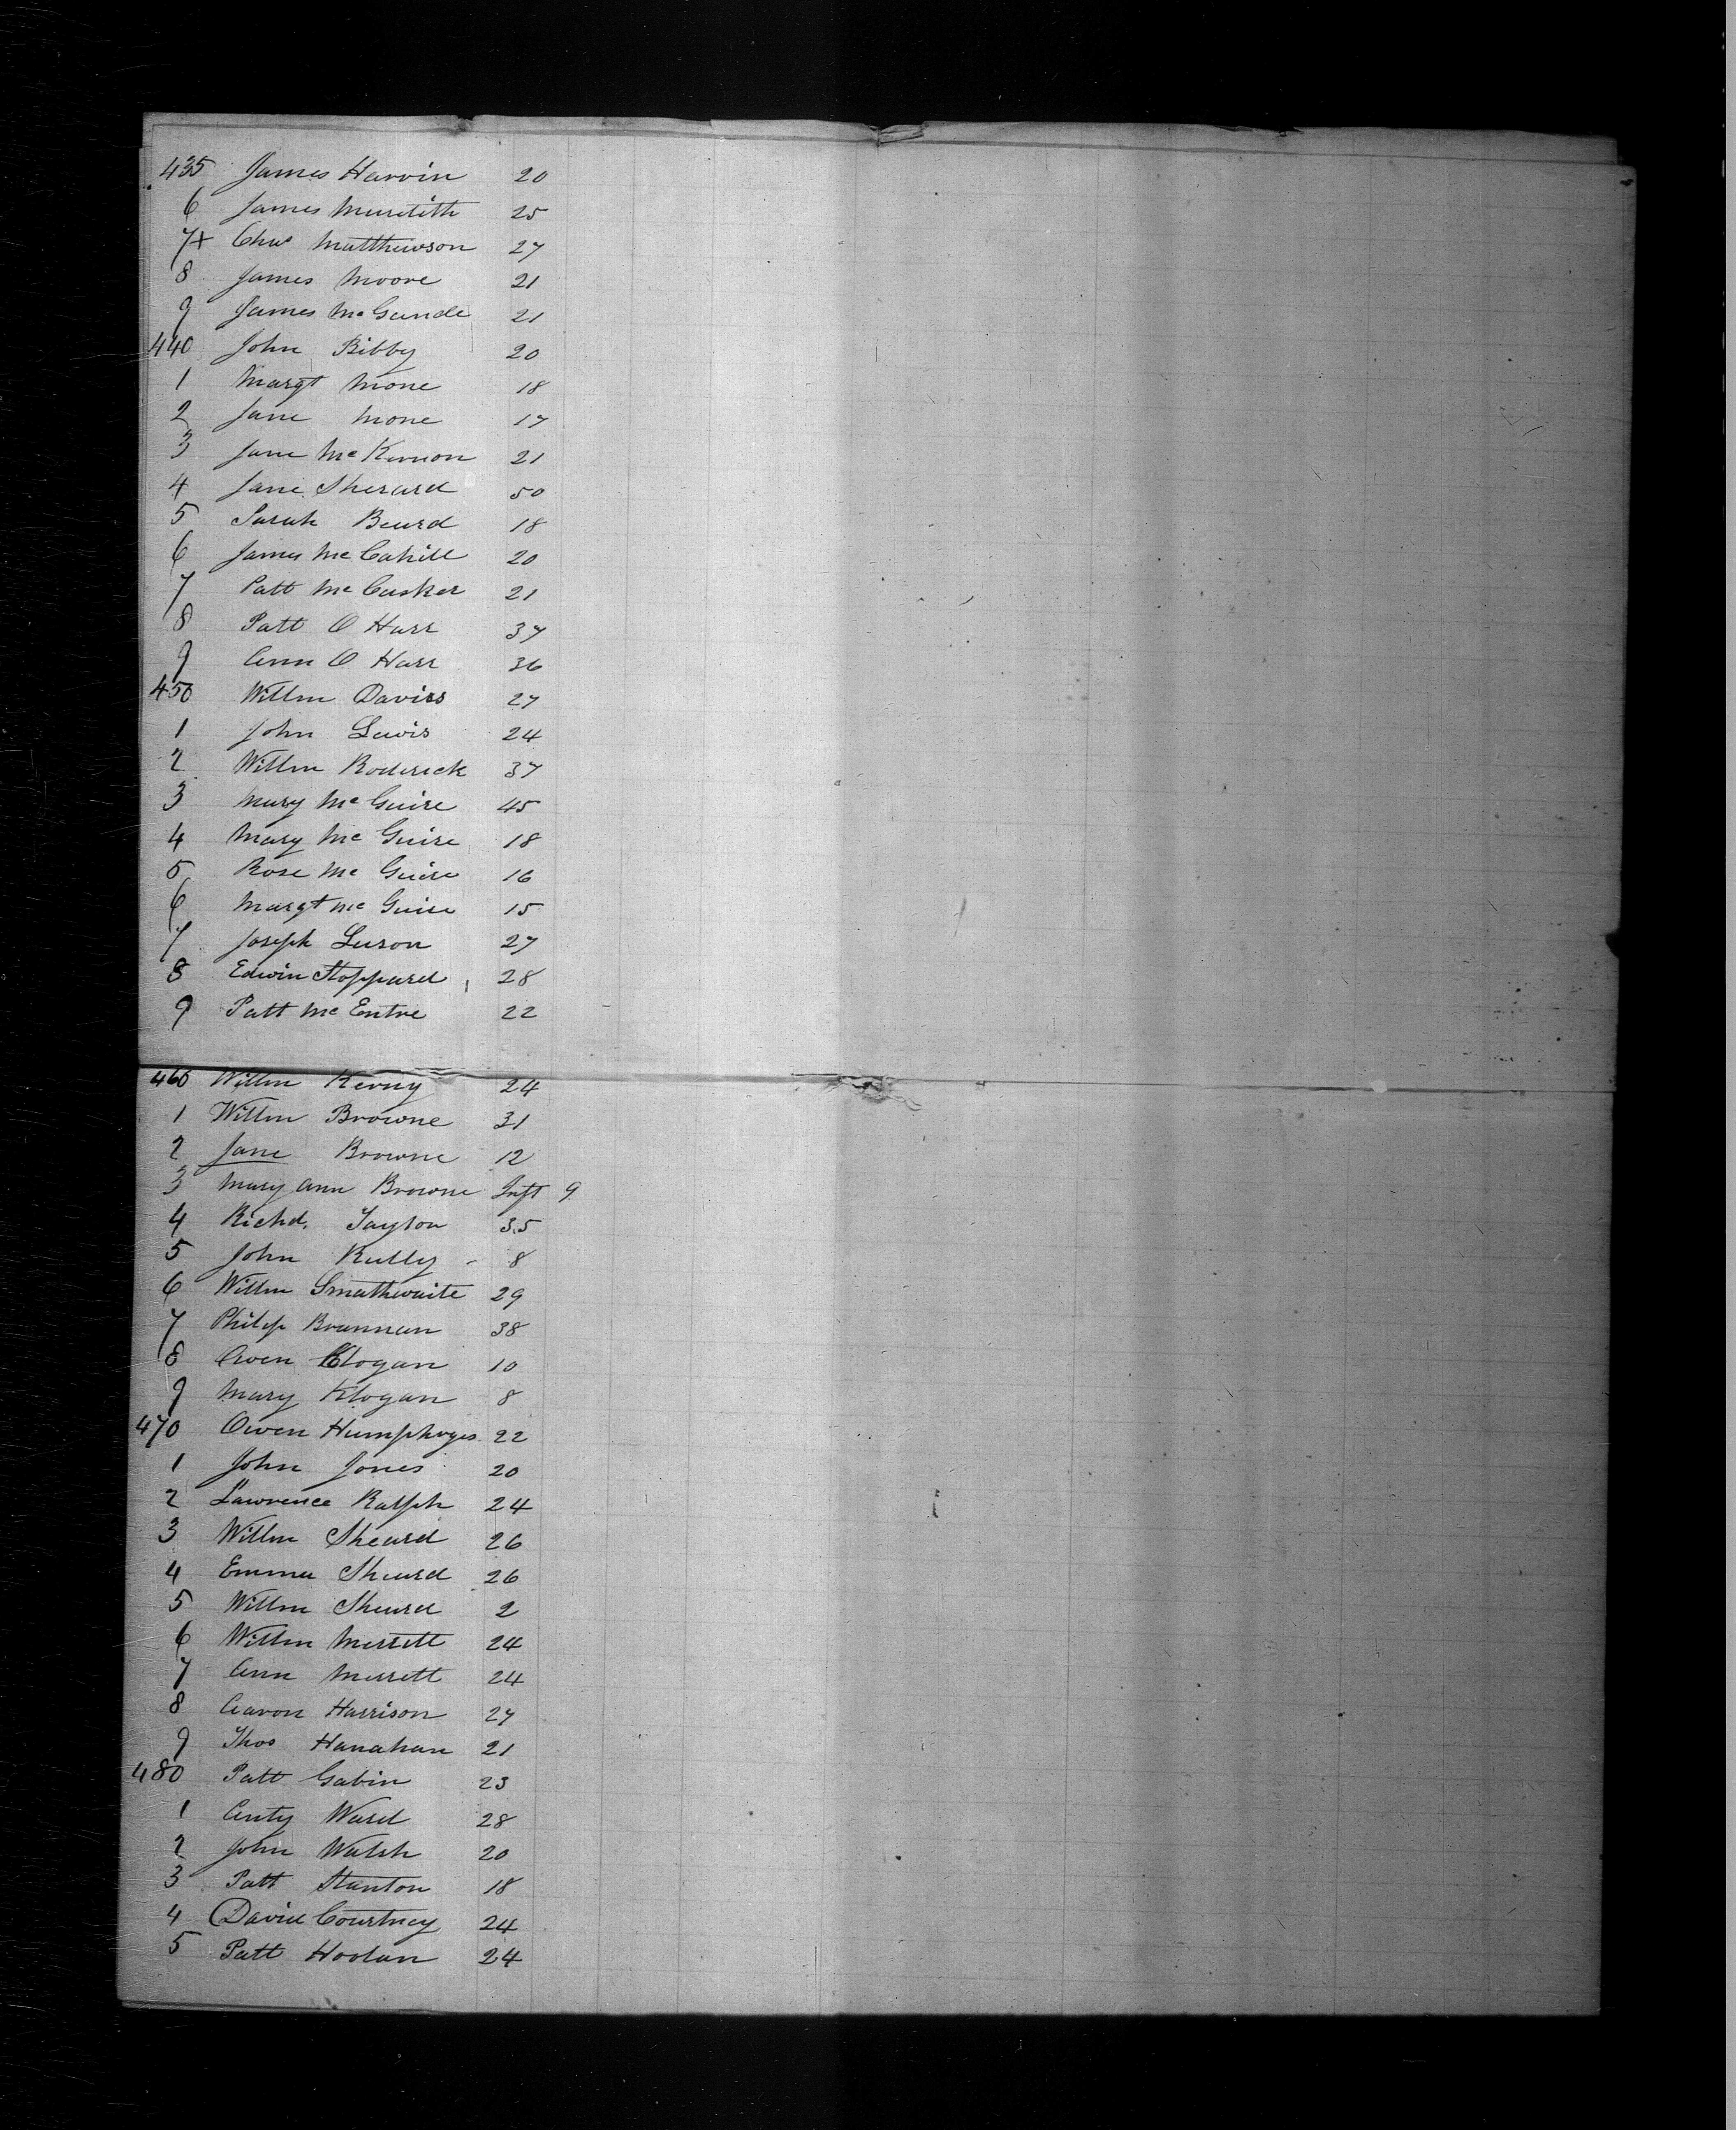 435 James Harvin 20
6 James Meredith 25
7+ Chas Matthewson 27
8 James Moore 21
9 James McGande 21
440 John Bibby 20
1 Margt Mone 18
2 Jane Mone 17
3 Jane McKernon 21
4 Jane Sherard 50
5 Sarah Beard 18
6 James McCahill 20
7 Patt McCusker 21
8 Patt O Harr 37
9 Ann O Harr 36
450 Willm Daviss 27
1 John Lewis 24
2 Willm Roderick 37
3 Mary McGuire 45
4 Mary McGuire 18
5 Rose McGuire 16
6 Margt McGuire 15
7 Joseph Luson 27
8 Edwin Stoppard 28
9 Patt McEntre 22
460 Willm Kerny 24
1 Willm Browne 31
2 Jane Browne 12
3 Mary Ann Browne Inft 9
4 Richd. Taylor 35
5 John Kelly - 8
6 Willm Smathwaite 29
7 Philip Brannan 38
8 Owen Klogan 10
9 Mary Klogan 8
470 Owen Humphryes 22
1 John Jones 20
2 Lawrence Ralph 24
3 Willm Sheard 26
4 Emma Sheard 26
5 Willm Sheard 2
6 Willm Merrett 24
7 Ann Merrett 24
8 Aaron Harrison 27
9 Thos Hanahan 21
480 Patt Gabin 23
1 Anty Ward 28
2 John Walsh 20
3 Patt Stanton 18
4 David Courtney 24
5 Patt Hoolan 24